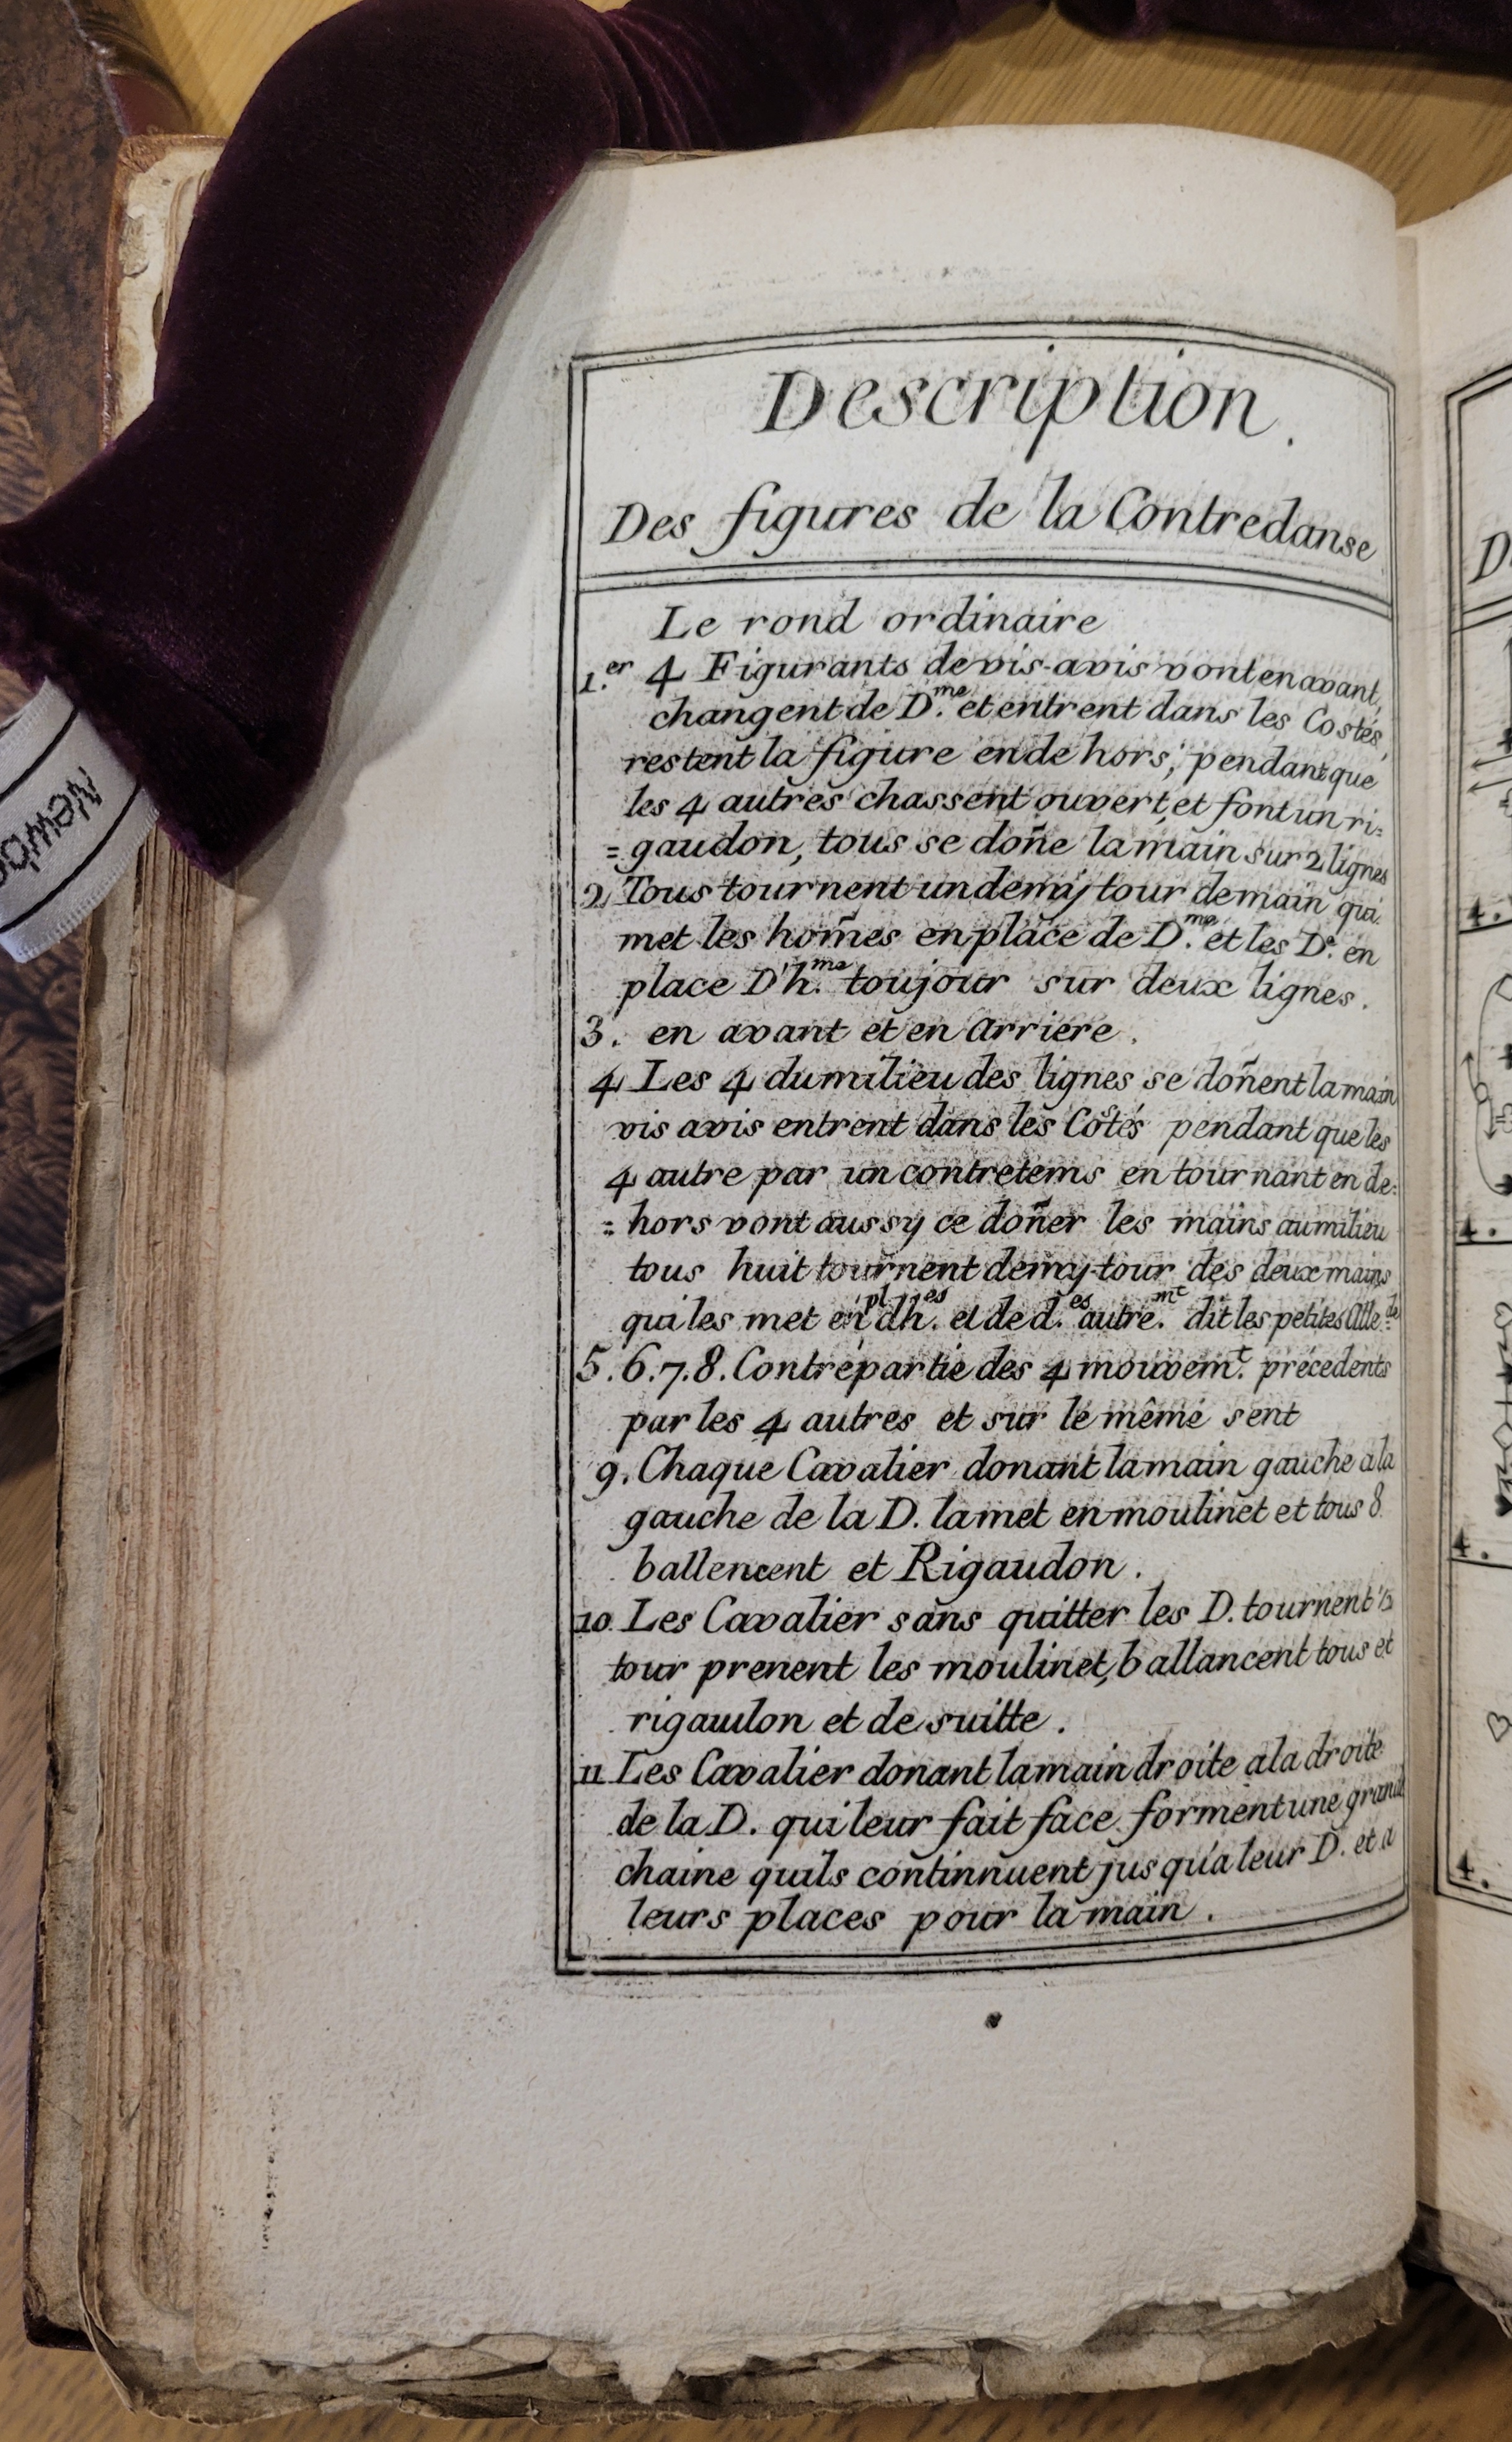 Description.
Des figures de la Contredanse
Le rond ordinaire
1.er 4 Figurants de vis-avis vont en avant,
changent de D.me et entrent dans les Costés,
restent la figure en de hors, pendant que
les 4 autres chassent ouvert, et font un ri=
=gaudon, tous se doñe la main sur 2 lignes
2 Tous tournent un demy tour de main qui
met les hom̃es en place de D.me et les D.e en
place D'h.me toujour sur deux lignes.
3. en avant et en Arriere.
4 Les 4 du milieu des lignes se doñent la main
vis avis entrent dans les Côtés pendant que les
4 autre par un contretems en tournant en de=
=hors vont aussy ce doñer les mains au milieu
tous huit tournent demy-tour des deux mains
qui les met en pl dh.es et de d.es autre.mt dit les petites Alle.de
5.6.7.8. Contrepartie des 4 mouvem.t précedents
par les 4 autres et sur le même sent
9. Chaque Cavalier donant la main gauche a la
gauche de la D. la met en moulinet et tous 8
ballencent et Rigaudon.
10. Les Cavalier sans quitter les D. tournent 1/2
tour prenent les moulinet, ballancent tous et
rigaudon et de suitte.
11 Les Cavalier donant la main droite a la droite
de la D. qui leur fait face forment une grand
chaine quils continnuent jusqu'a leur D. et a
leurs places pour la main.
D
4.
4.
4.
4.